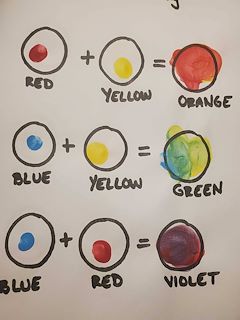 + =
RED YELLOW ORANGE
+ =
BLUE YELLOW GREEN
+ =
BLUE RED VIOLET